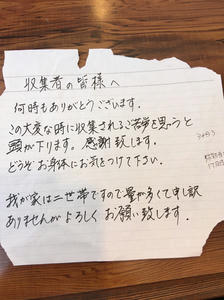 収集者の皆様へ
何時もありがとうございます.
この大変な時に収集されるご苦労を思うと
頭が下ります。感謝致します.
どうぞお身体にお気をつけて下さい.
我が家は二世帯ですので量が多くて申し訳
ありませんがよろしくお願い致します.